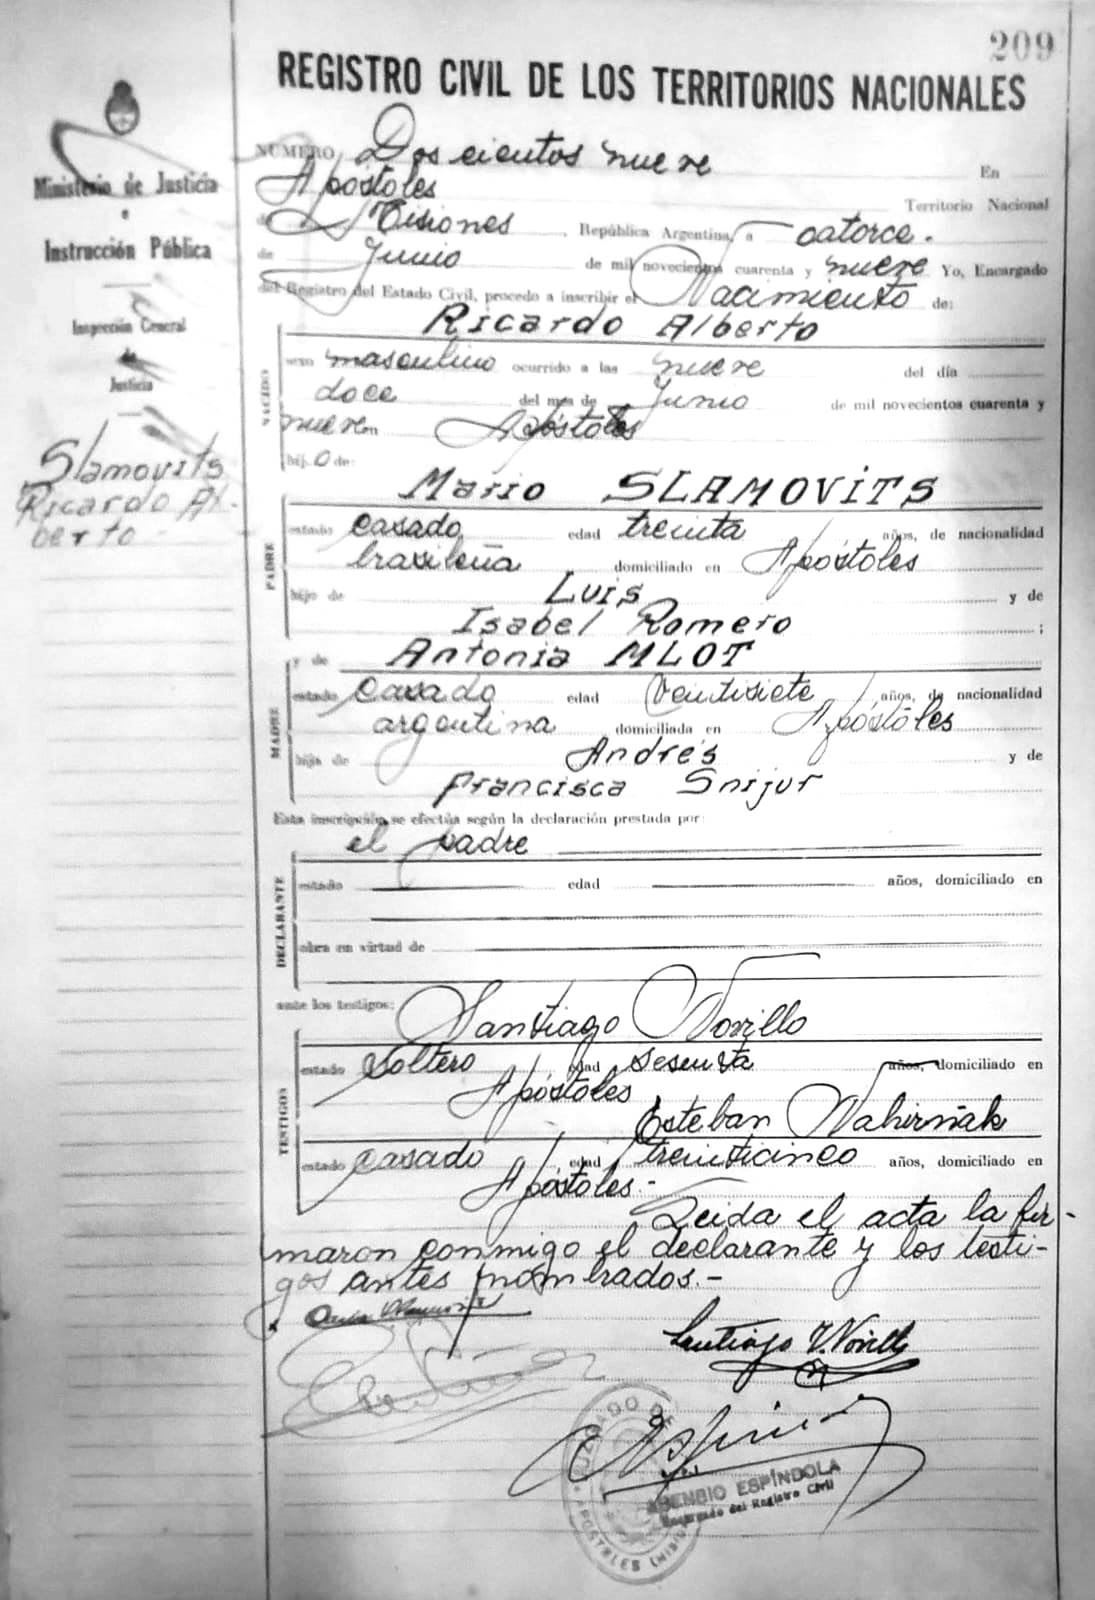 209
REGISTRO CIVIL DE LOS TERRITORIOS NACIONALES
Ministerio de Justicia
e
Instrucción Pública
Inspección General
de
Justicia
Slamovits
Ricardo Al-
berto
NÚMERO Doscientos nueve En
Apóstoles Territorio Nacional
de Misiones, República Argentina, a catorce.
de Junio de mil novecientos cuarenta y nueve Yo, Encargado
del Registro del Estado Civil, procedo a inscribir el Nacimiento de:
Ricardo Alberto
NACIDO
sexo masculino ocurrido a las nueve del día
doce del mes de Junio de mil novecientos cuarenta y
nueve en Apóstoles
hijo de:
Mario SLAMOVITS
PADRE
estado casado edad treinta años, de nacionalidad
brasileña domiciliado en Apóstoles
hijo de Luis y de
Isabel Romero ;
y de Antonia MLOT
MADRE
estado casado edad veintisiete años, de nacionalidad
argentina domiciliada en Apóstoles
hija de Andrés y de
Francisca Snijur
Esta inscripción se efectúa según la declaración prestada por:
el padre
DECLARANTE
estado edad años, domiciliado en
obra en virtud de
ante los testigos: Santiago Novillo
TESTIGOS
estado soltero edad sesenta años, domiciliado en
Apóstoles
Esteban Nahirñak
estado casado edad treinticinco años, domiciliado en
Apóstoles.-
Leida el acta la fir-
maron conmigo el declarante y los testi-
gos antes nombrados.-
Santiago V. Novillo
JUZGADO DE
APOSTOLES
ASENBIO ESPÍNDOLA
Encargado del Registro Civil